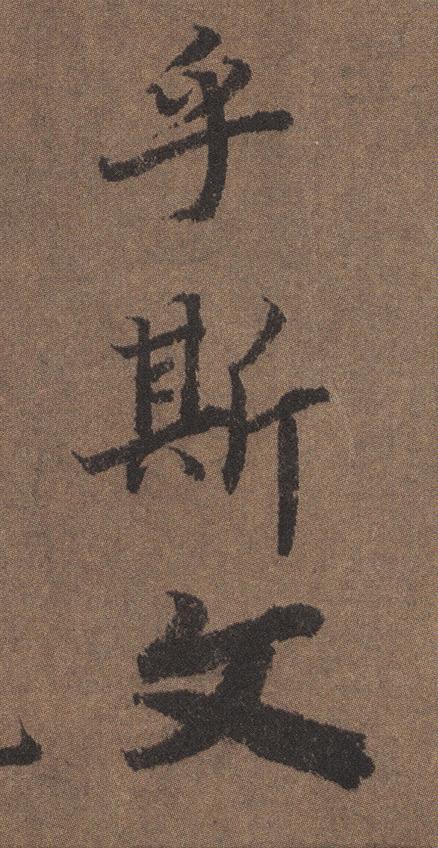 乎斯文